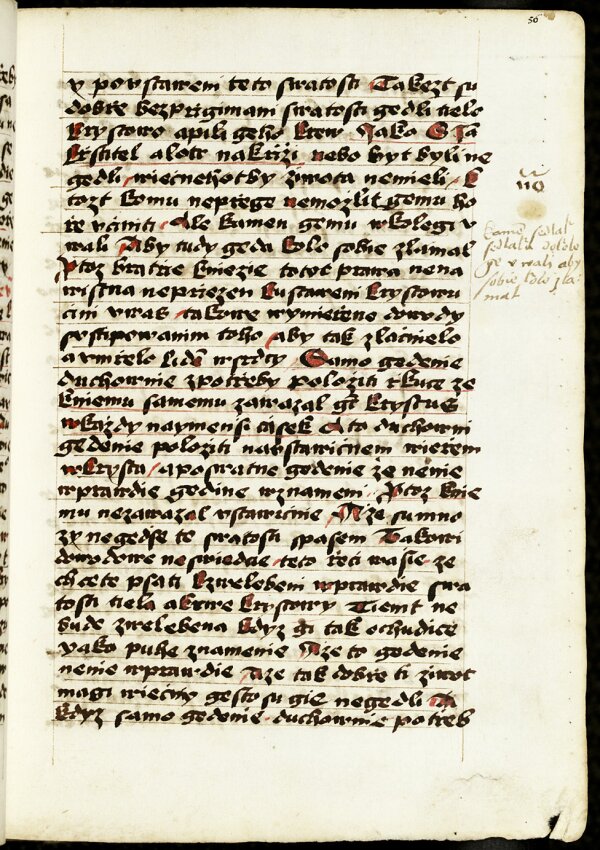 56
y powstaweni teto swatosti Takezt su
dobrze bezprzigimani swatosti gedli tielo
Krystowo apili geho krew Jako S Jā
Krstitel a lotr nakrzizi nebo byt byli ne
gedli wiecnehotby ziwota nemieli
tozt komu neprzege nemozlit gemu ho
rze vciniti Ale kamen gemu wkolegi v
wali Aby tudy geda kolo sobie zlamal
Protoz bratrzie kniezie totoc prawa nena
wistna neprziezen kustaweni Krystowu
cini vwas takowe wymierzene dowody
sestipowanim toho aby tak zlacinielo
a vmrzelo lidu wsrdcy Samo gedenie
duchownie zpotrzeby poloziti rkuce ze
kniemu samemu zawazal gt Krystus
wkazdy naymensi casek A to duchowni
gedenie poloziti naustawicnem wierzem
wKrysta aposwatne gedenie ze nenie
wprawdie gedine wznameni Protoz knie
mu nezawazal vstawicnie A ze su mno
zy negedse te swatosti spasem Takowi
dowodowe neswiedcie teto rzeci wasie ze
chcete psati kzwelebeni wprawdie swa
tosti tiela akrwe Krystowy Tiemt ne
bude zwelebena kdyz gi tak ochudice
yako puhe znamenie A ze to gedenie
nenie wprawdie A ze tak dobrze ti ziwot
magi wiecny gesto su gie negedli A
kdyz samo gedenie duchownie potrzeb
110
kamē
ge v wali aby
sobie kolo zla
mal